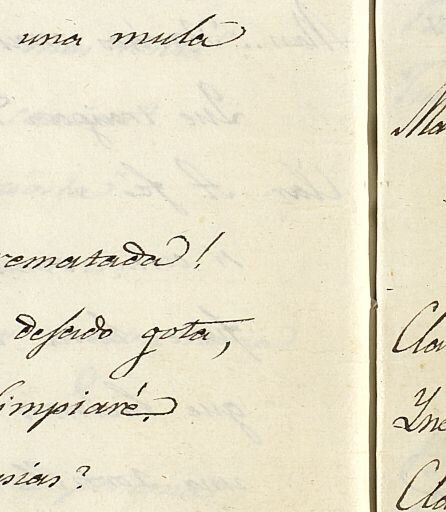 una mula
rematada!
desado gota,
limpiaré.
sias?
Ma
Cla
Ine
Cla